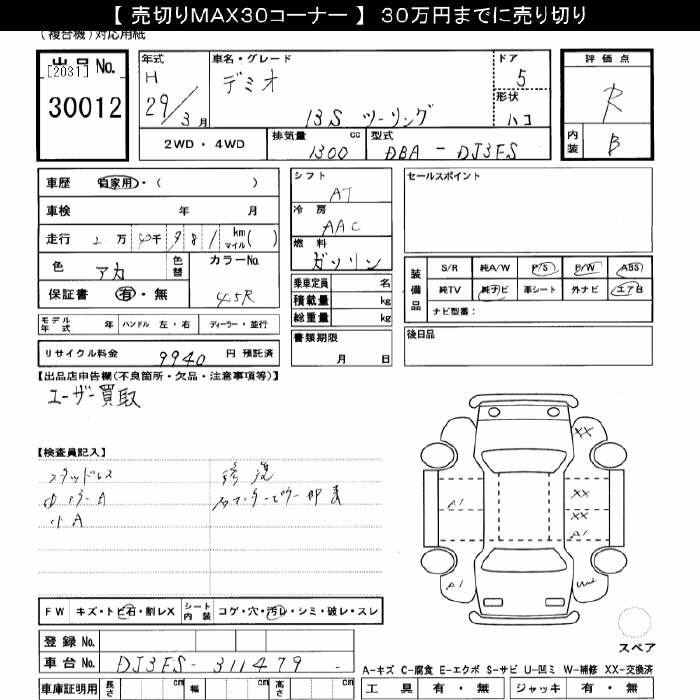 【 売切りMAX30コーナー 】 30万円までに売り切り
(複合機)対応用紙
出品No. [2031] 30012
年式 H 29/3月
車名・グレード デミオ 13S ツーリング
ドア 5
形状 ハコ
評価点 R
内装 B
2WD・4WD
排気量 1300 cc
型式 DBA - DJ3FS
車歴 自家用・( )
車検 年 月
走行 2万 4千 9 8 1 km マイル( )
色 アカ 色替 カラーNo. 45R
保証書 有・無
モデル年式 年 ハンドル 左・右 ディーラー・並行
リサイクル料金 9940 円 預託済
シフト AT
冷房 AAC
燃料 ガソリン
乗車定員 名
積載量 kg
総重量 kg
書類期限 月 日
セールスポイント
装備品
S/R 純A/W P/S P/W ABS
純TV 純ナビ 革シート 外ナビ エアB
ナビ型番:
後日品
【出品店申告欄(不良箇所・欠品・注意事項等)】
ユーザー買取
【検査員記入】
スタッドレス
修復
小A
XX
XX
A1
XX
A1
A1
FW キズ・トビ石・割レX シート内装 コゲ・穴・汚レ・シミ・破レ・スレ
登録No.
車台No. DJ3FS-311479
車庫証明用 長さ cm 幅 cm 高さ cm
スペア
A-キズ C-腐食 E-エクボ S-サビ U-凹ミ W-補修 XX-交換済
工具 有・無 ジャッキ 有・無